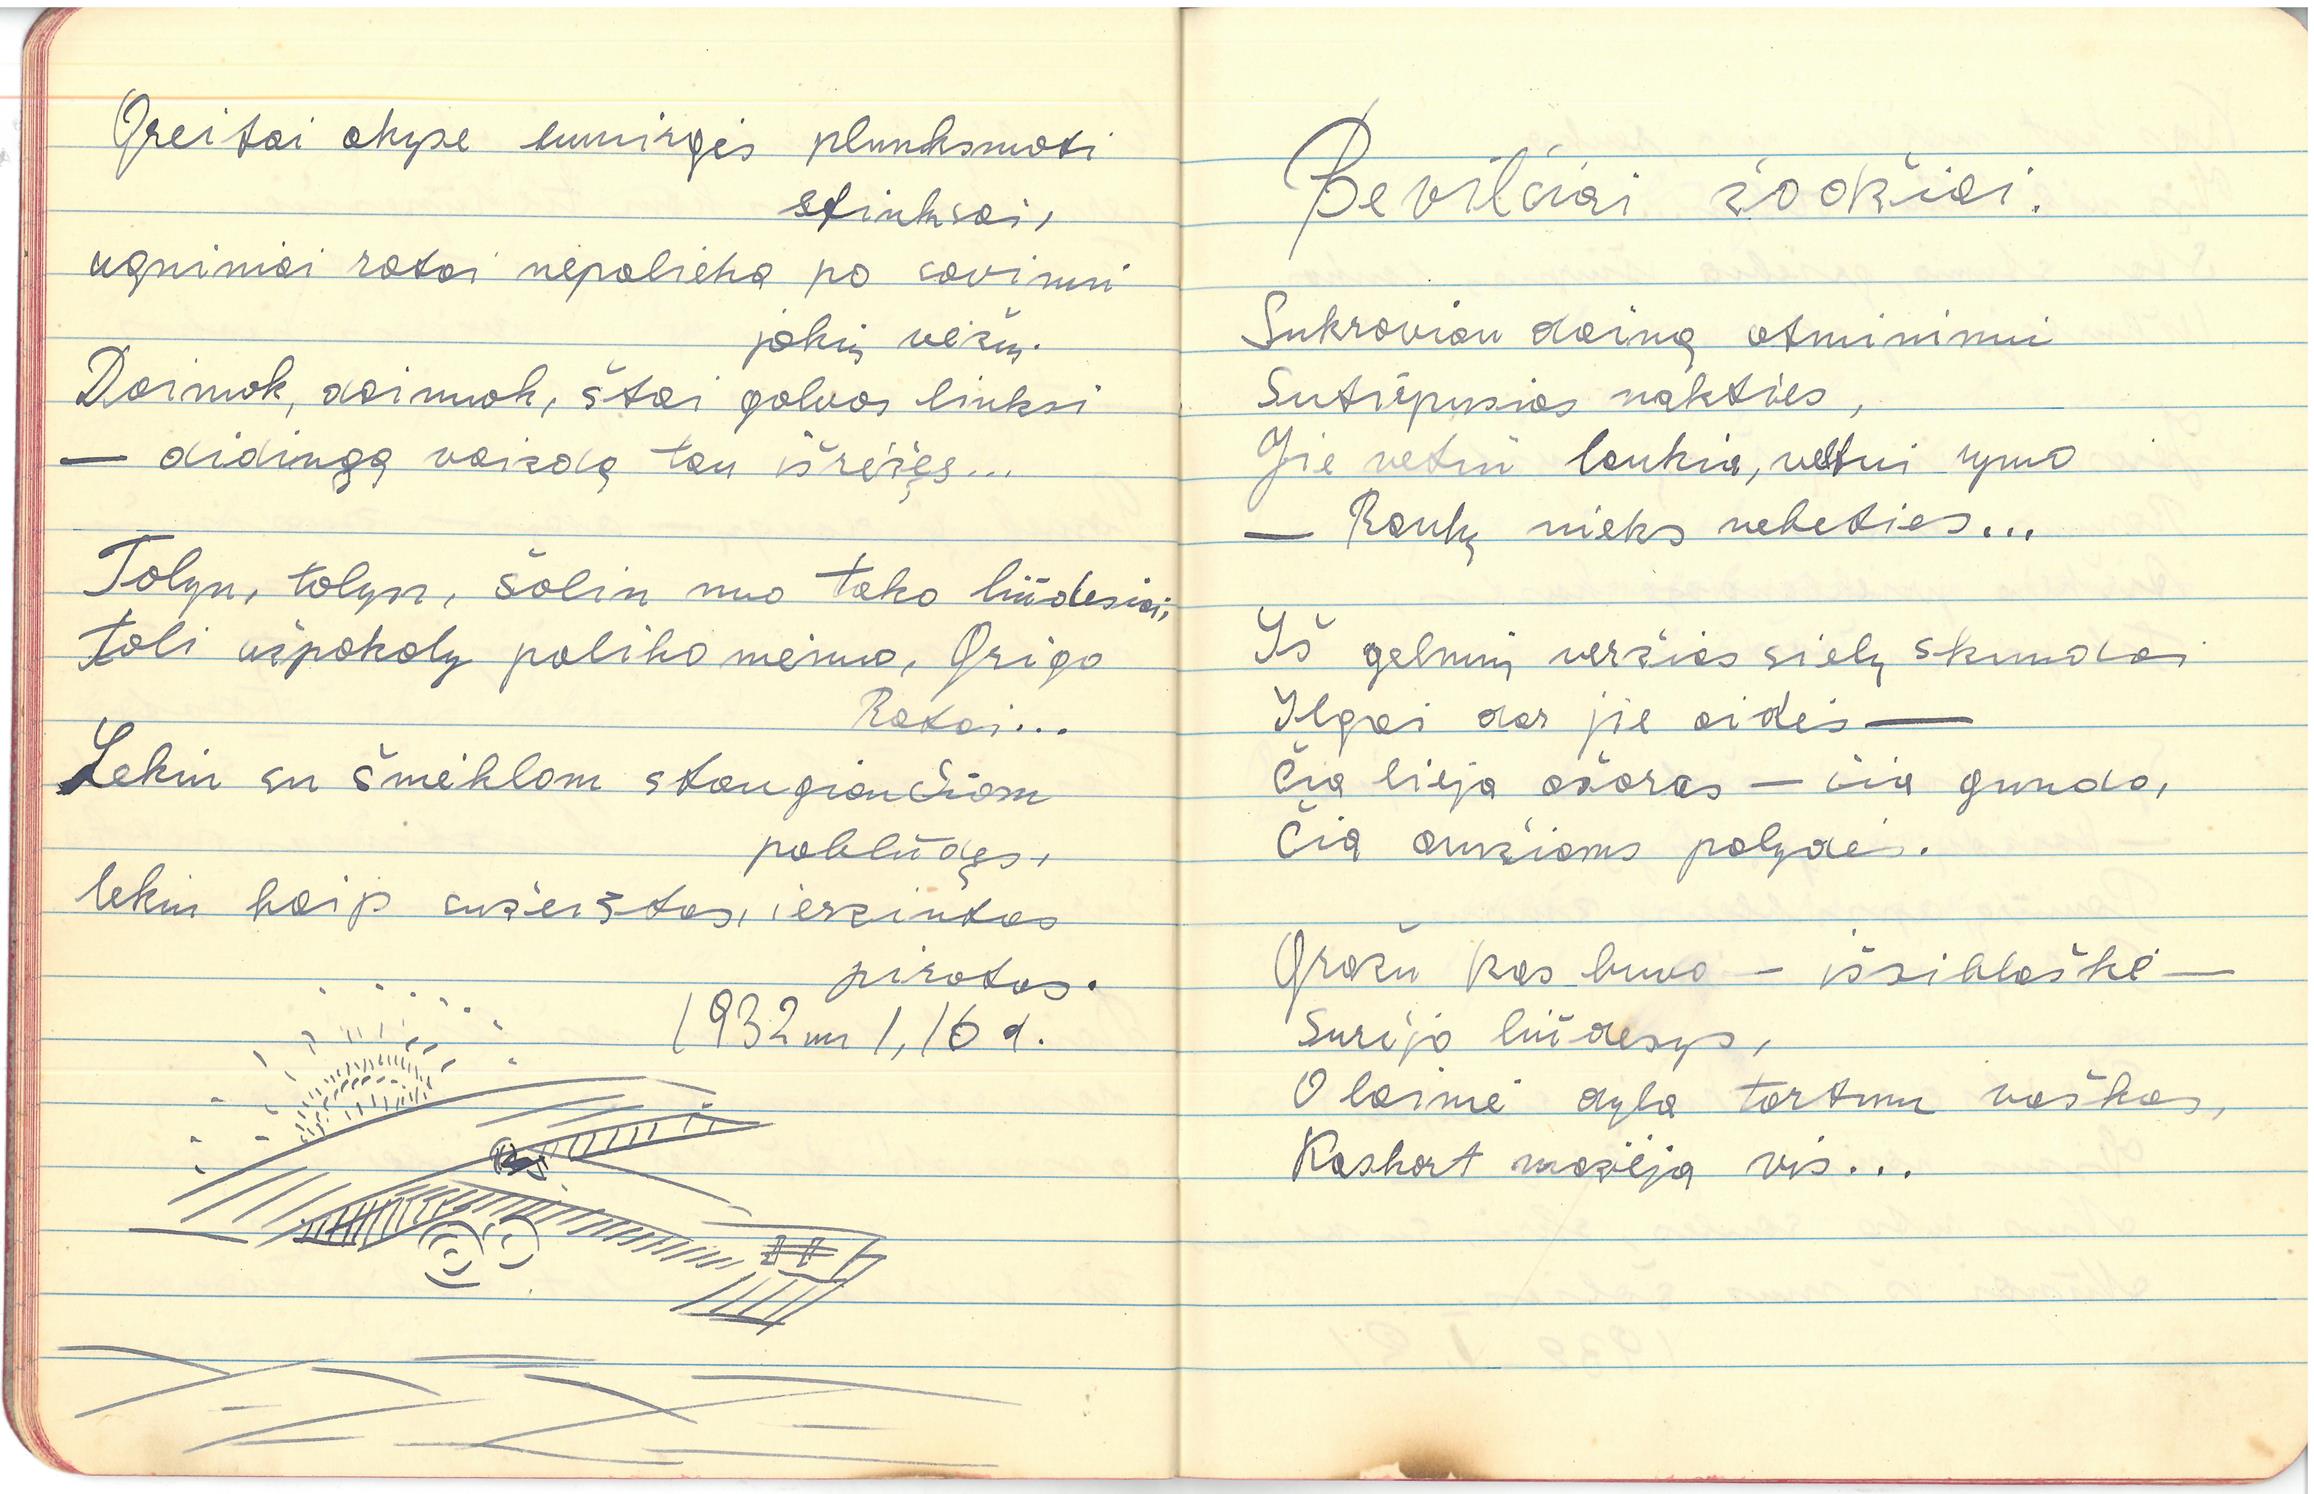 Greitai akyse sumirgės plunksnoti
sfinksai,
ugniniai ratai nepalieka po savimi
jokių vėžių.
Dainuok, dainuok, štai galvos linksi
— didingą vaizdą tau išrėžęs...
Tolyn, tolyn, šalin nuo tako liūdesiai,
toli užpakaly paliko meino, Grigo
Ratai...
Lekiu su šmėklom staugiančiom
pablūdęs,
lekiu kaip sužeistas, įerzintas
piratas.
1932 m 1, 16 d.
Bevilčiai žodžiai.
Sukroviau dainą atminimui
Sutirpusios nakties,
Jie vetui laukia, veltui rymo
— Rankų nieks nebeties...
Iš gelmių veržias sielų skundai
Ilgai dar jie aidės —
Čia lieja ašaras — čia gundo,
Čia amžiams palydės.
Gražu kas buvo — išsiblaškė —
Surijo liūdesys,
O laimė dyla tartum vaškas,
Kaskart mažėja vis...